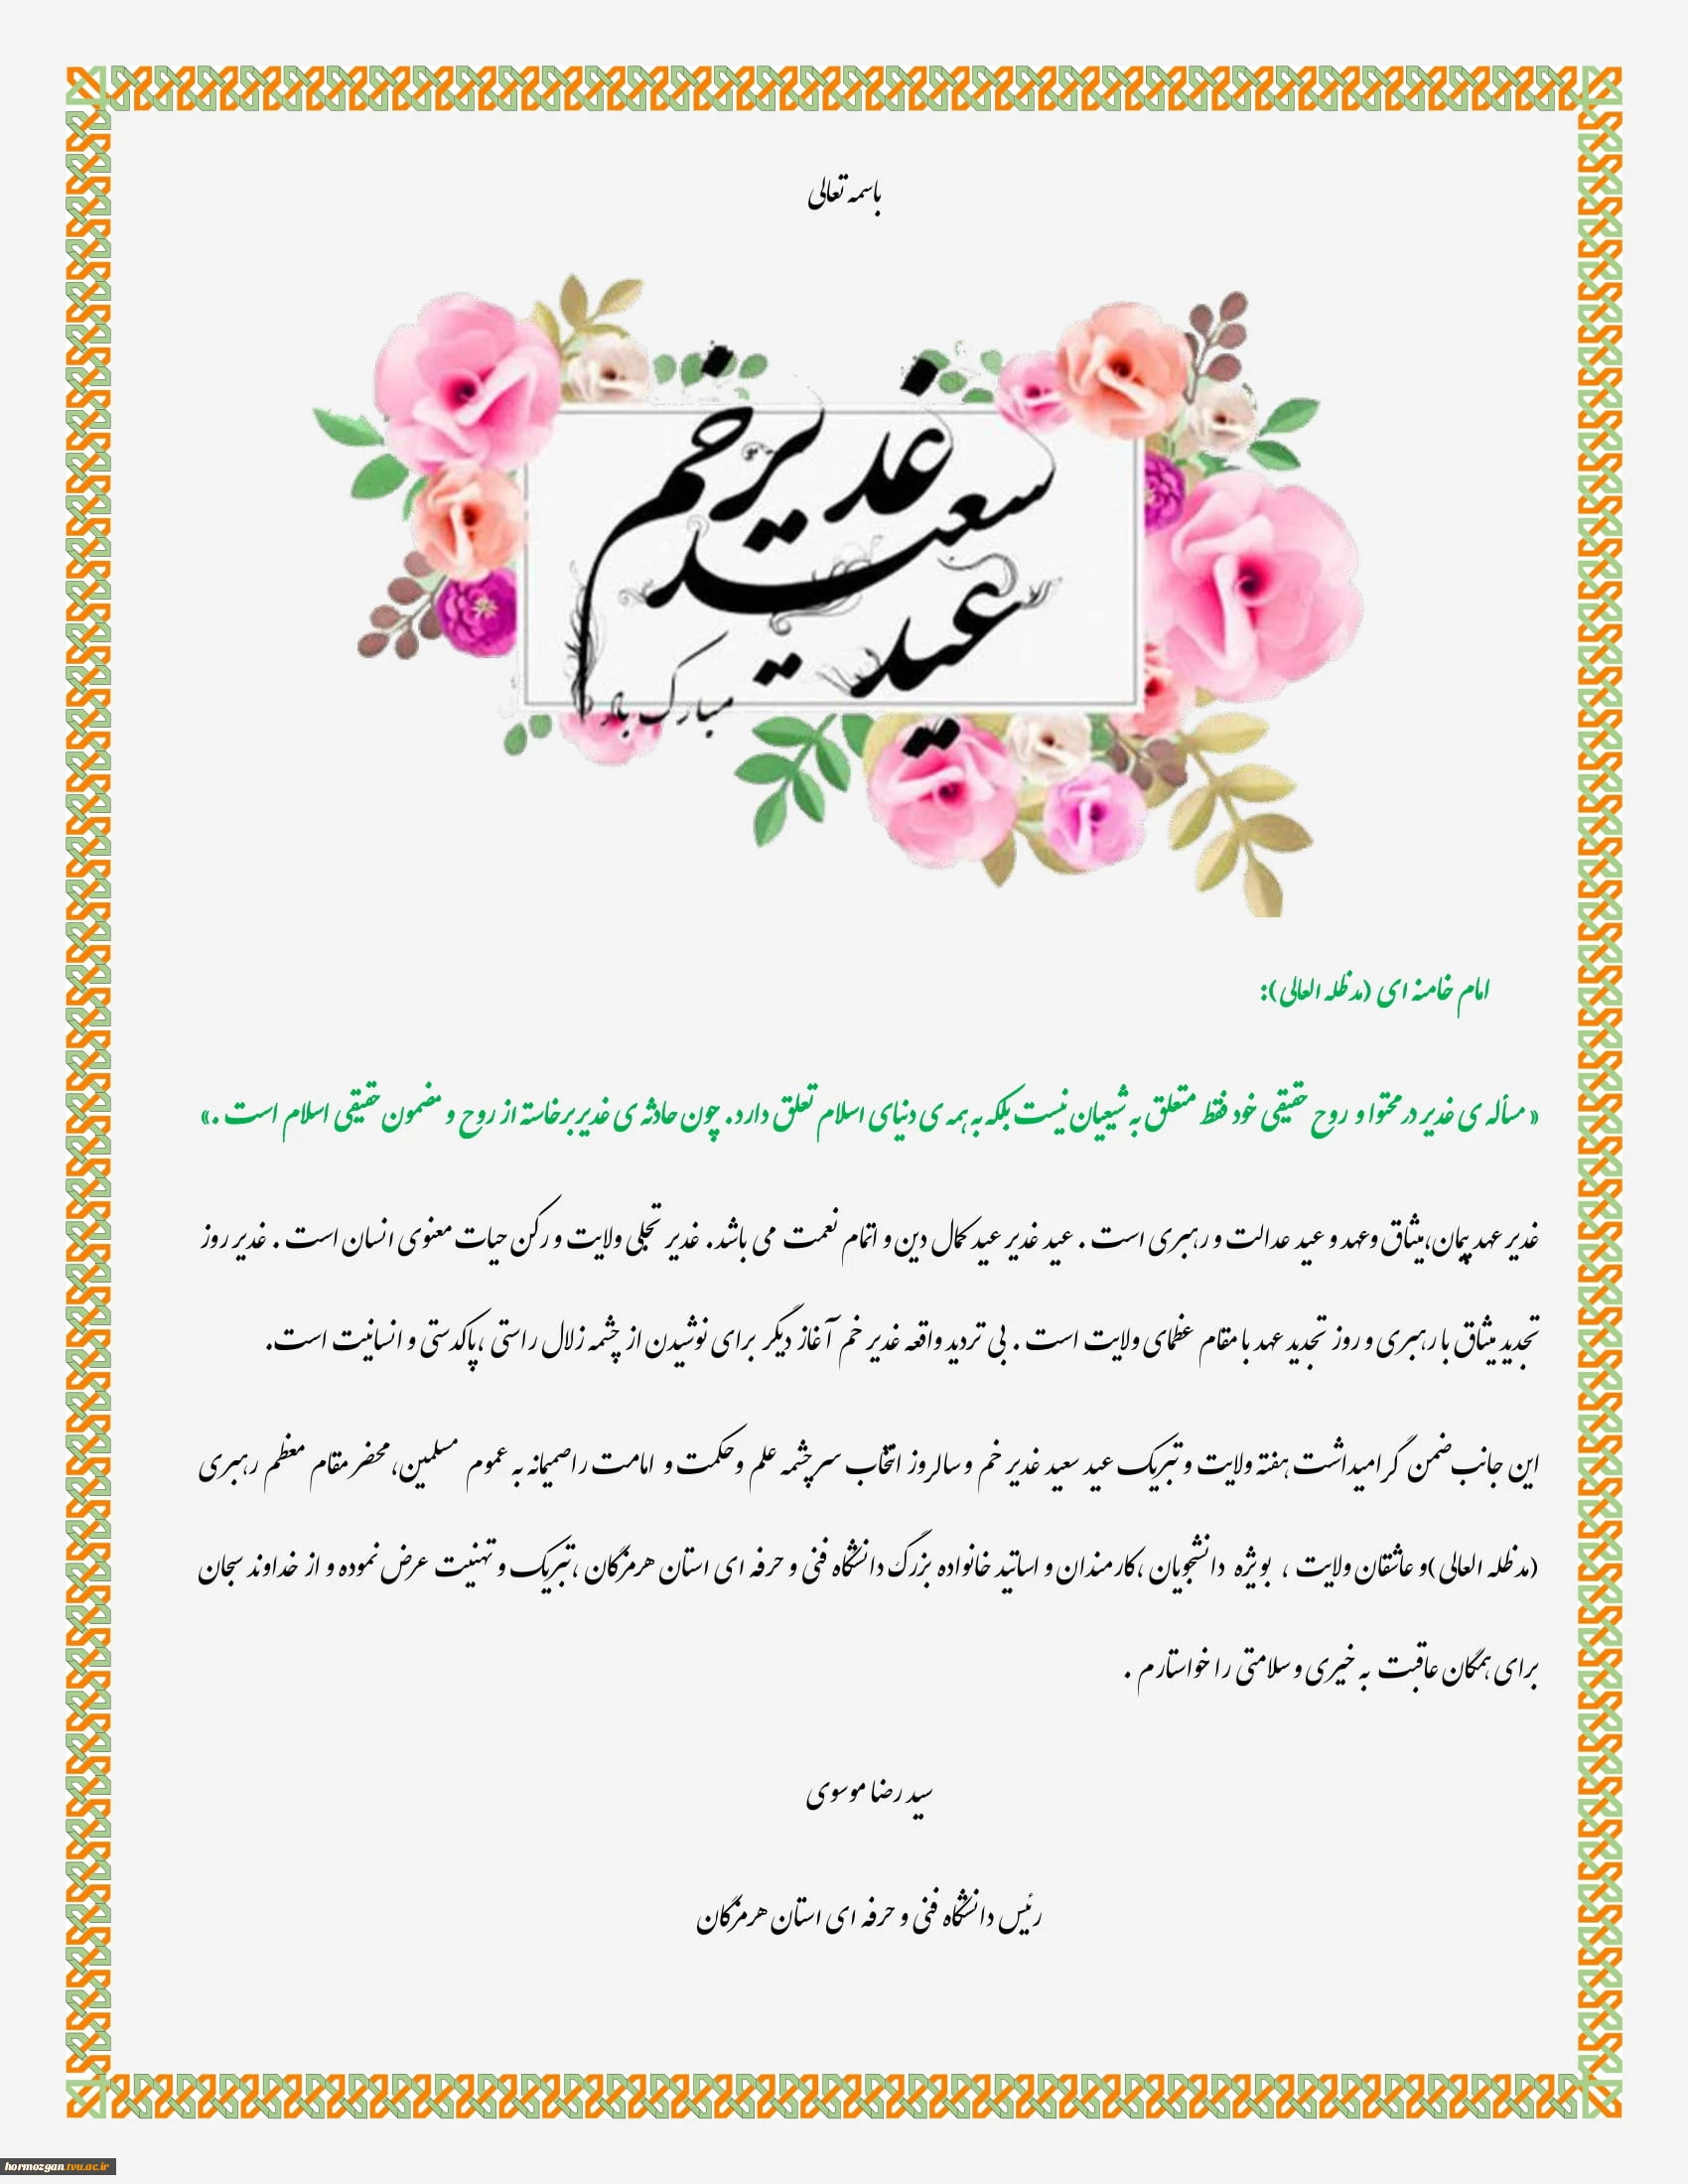 باسمه تعالی
عید سعید غدیر خم
مبارک باد
امام خامنه ای (مدظله العالی):
« مسأله ی غدیر در محتوا و روح حقیقی خود فقط متعلق به شیعیان نیست بلکه به همه ی دنیای اسلام تعلق دارد. چون حادثه ی غدیر برخاسته از روح و مضمون حقیقی اسلام است .»
غدیر عهد پیمان،میثاق وعهد و عید عدالت و رهبری است . عید غدیر عید کمال دین و اتمام نعمت می باشد. غدیر تجلی ولایت و رکن حیات معنوی انسان است . غدیر روز
تجدید میثاق با رهبری و روز تجدید عهد با مقام عظمای ولایت است . بی تردید واقعه غدیر خم آغاز دیگر برای نوشیدن از چشمه زلال راستی ،پاکدستی و انسانیت است.
این جانب ضمن گرامیداشت هفته ولایت و تبریک عید سعید غدیر خم و سالروز انتخاب سرچشمه علم وحکمت و امامت را صمیمانه به عموم مسلمین، محضر مقام معظم رهبری
(مدظله العالی)و عاشقان ولایت ، بویژه دانشجویان ،کارمندان و اساتید خانواده بزرگ دانشگاه فنی و حرفه ای استان هرمزگان ،تبریک و تهنیت عرض نموده و از خداوند سبحان
برای همگان عاقبت به خیری و سلامتی را خواستارم .
سید رضا موسوی
رئیس دانشگاه فنی و حرفه ای استان هرمزگان
hormozgan.tvu.ac.ir